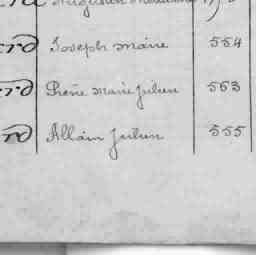 rd Joseph Marie 554
rd Pierre Marie Julien 553
rd Allain Julien 555